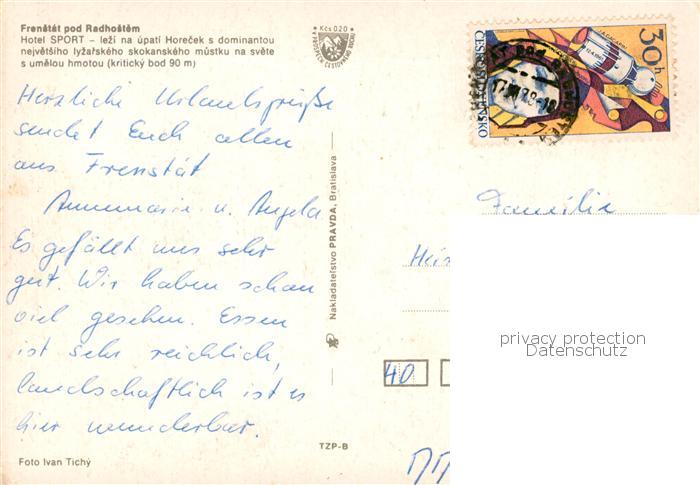 Frenštát pod Radhoštěm
Hotel SPORT – leží na úpatí Horeček s dominantou
největšího lyžařského skokanského můstku na světe
s umělou hmotou (kritický bod 90 m)
Kčs 020
Herzliche Urlaubsgrüße
sendet Euch allen
aus Frenštát
Annemarie u. Angela
Es gefällt uns sehr
gut. Wir haben schon
viel gesehen. Essen
ist sehr reichlich,
landschaftlich ist es
hier wunderbar.
Foto Ivan Tichý
TZP-B
Nakladateľstvo PRAVDA, Bratislava
30 h
ČESKOSLOVENSKO
Familie
40
privacy protection
Datenschutz